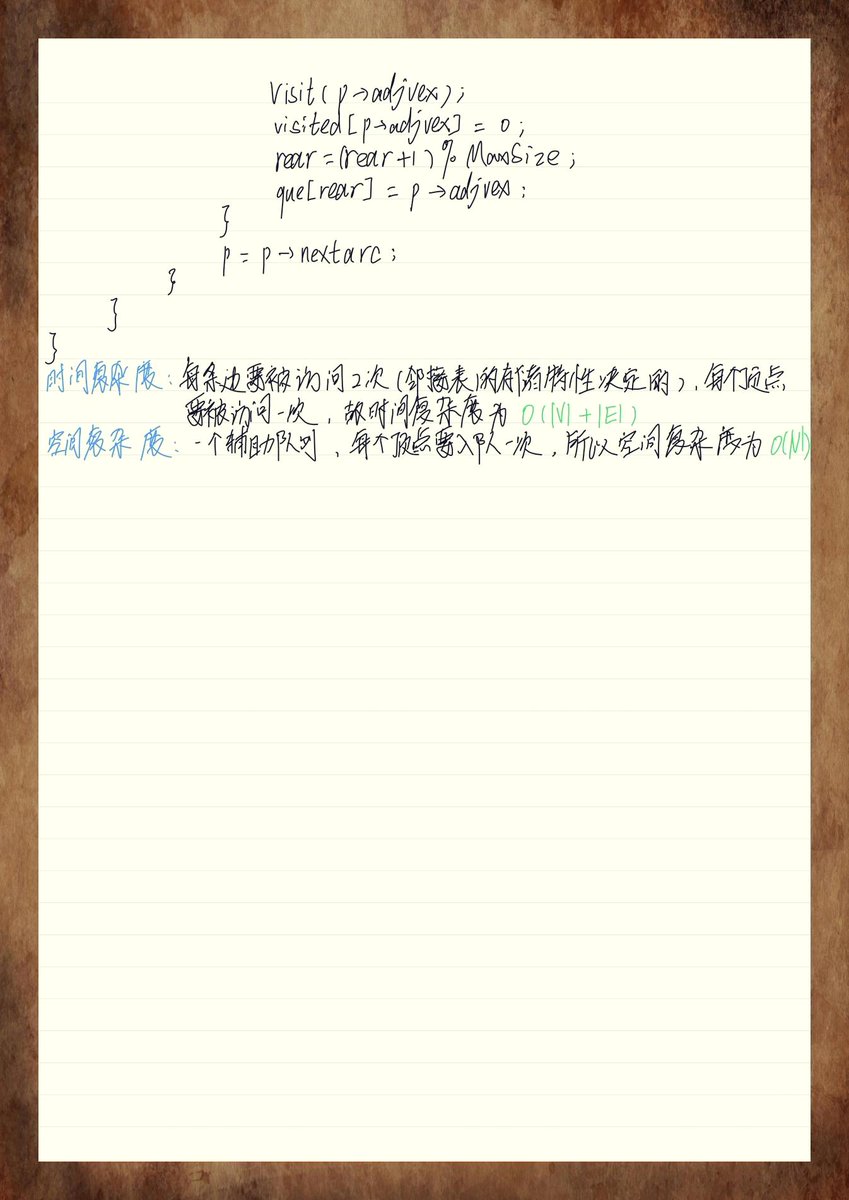 Visit(p→adjvex);
visited[p→adjvex] = 0;
rear=(rear+1)%MaxSize;
que[rear] = p→adjvex;
}
p = p→nextarc;
}
}
}
时间复杂度:每条边要被访问2次(邻接表的存储特性决定的),每个顶点
要被访问一次,故时间复杂度为 O(|V|+|E|)
空间复杂度:一个辅助队列,每个顶点要入队一次,所以空间复杂度为O(|V|)